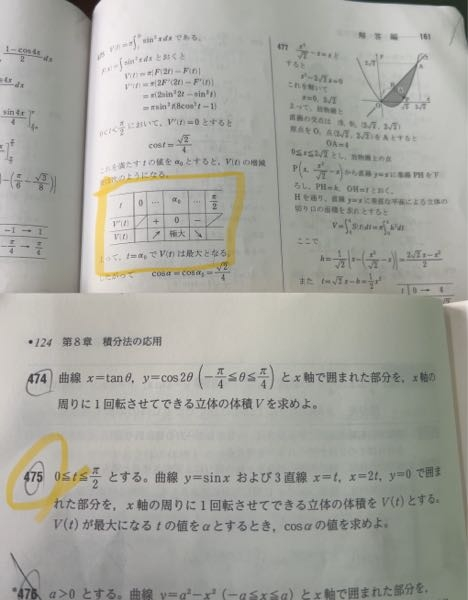 1-cos4x
2
dx
sin4x
4
3
8
-1 → 1
π
4
→
π
4
V(t)=π∫ sin²xdx である。
F(x)=∫sin²xdx とおくと
V(t)=π{F(2t)-F(t)}
V'(t)=π{2F'(2t)-F'(t)}
=π(2sin²2t-sin²t)
=πsin²t(8cos²t-1)
0<t<π/2 において,V'(t)=0 とすると
cost=√2/4
これを満たす t の値を α₀ とすると,V(t) の増減
は次のようになる。
t 0 … α₀ … π/2
V'(t) + 0 -
V(t) ↗ 極大 ↘
よって,t=α₀ で V(t) は最大となる。
したがって cosα=cosα₀=√2/4
解答編 161
477 x²/√2-x=x と
すると
x²-2√2x=0
これを解いて
x=0, 2√2
よって,放物線と
直線の交点は
原点を O,点 (2√2, 2√2) を A とすると
OA=4
0≦x≦2√2 とし,放物線上の点
P(x, x²/√2-x) から直線 y=x に垂線 PH を下
ろし,PH=h,OH=t とおく。
H を通り,直線 y=x に垂直な平面による立体の
切り口の面積を求めると
V=∫₀⁴S(t)dt=π∫₀⁴h²dt
ここで
h=1/√2{x-(x²/√2-x)}=(2√2x-x²)/2
また t=√2x-h=1/2x²
t 0 → 4
•124 第8章 積分法の応用
474 曲線 x=tanθ, y=cos2θ (-π/4≦θ≦π/4) と x 軸で囲まれた部分を,x 軸の
周りに1回転させてできる立体の体積 V を求めよ。
475 0≦t≦π/2 とする。曲線 y=sinx および3直線 x=t, x=2t, y=0 で囲ま
れた部分を,x 軸の周りに1回転させてできる立体の体積を V(t) とする。
V(t) が最大になる t の値を α とするとき,cosα の値を求めよ。
*476 a>0 とする。曲線 y=a²-x² (-a≦x≦a) と x 軸で囲まれた部分を,